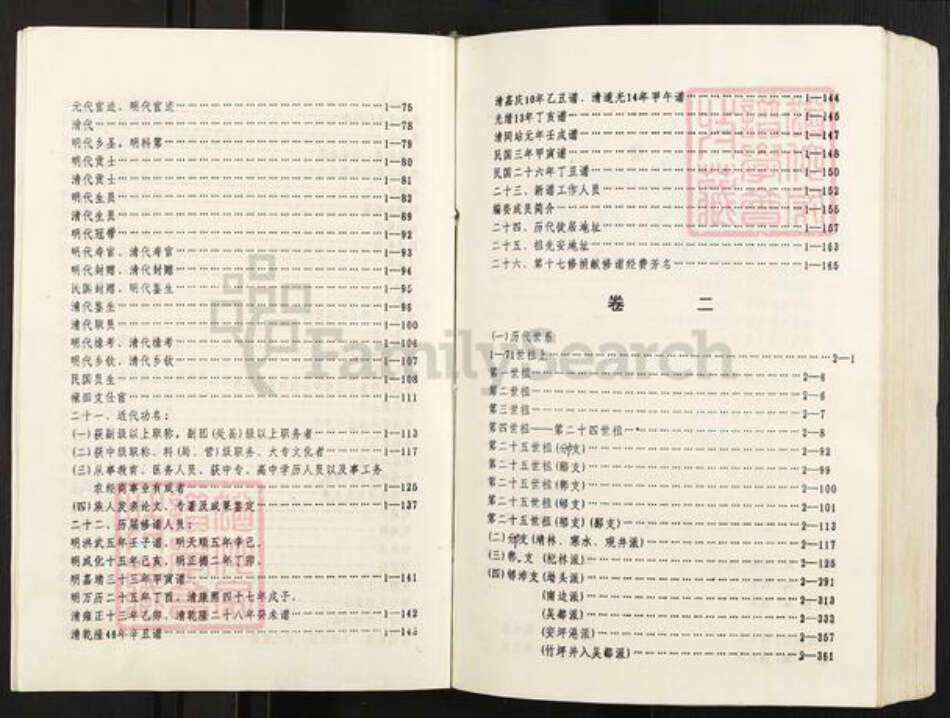 元代宦迹、明代宦迹……1—75
清代……1—78
明代乡圣，明科第……1—79
明代贡士……1—80
清代贡士……1—81
明代生员……1—82
清代生员……1—89
明代冠带……1—92
明代寿官、清代寿官……1—93
明代封赠、清代封赠……1—94
民国封赠、明代鉴生……1—95
清代鉴生……1—96
清代职员……1—100
明代椽考、清代椽考……1—106
明代乡饮、清代乡饮……1—107
民国贡生……1—108
……1—111
二十一、近代功名：
(一)获副级以上职称，副团(处县)级以上职务者……1—113
(二)获中级职称、科(局、营)级职务、大专文化者……1—117
(三)从事教育、医务人员、获中专、高中学历人员以及事工务
农经商事业有成者……1—125
(四)族人发表论文、专著及成果鉴定……1—137
二十二、历届修谱人员：
明洪武五年壬子谱，明天顺五年辛巳，
明成化十五年己亥，明正德二年丁卯，
明嘉靖三十三年甲寅谱……1—141
明万历二十五年丁酉，清康熙四十七年戊子，
清雍正十三年乙卯、清乾隆二十八年癸未谱……1—142
清乾隆46年辛丑谱……1—143
清嘉庆10年乙丑谱、清道光14年甲午谱……1—144
光绪13年丁亥谱……1—146
清同治元年壬戌谱……1—147
民国三年甲寅谱……1—148
民国二十六年丁丑谱……1—150
二十三、新谱工作人员……1—152
编委成员简介……1—155
二十四、历代徙居地址……1—157
二十五、祖先安地址……1—163
二十六、第十七修捐献修谱经费芳名……1—165
卷 二
(一)历代世系
1—71世祖上……2—1
第一世祖……2—6
第二世祖……2—6
第三世祖……2—7
第四世祖——第二十四世祖……2—8
第二十五世祖(邠支)……2—92
第二十五世祖(鄢支)……2—99
第二十五世祖(郸支)……2—100
第二十五世祖(郇支)……2—101
第二十五世祖(郗支)(鄞支)……2—113
(二)邠支(靖林、寒水、观井派)……2—117
(三)郸支 (杞林派)……2—125
(四)郇沛支(墙头派)……2—291
(南边派)……2—313
(吴都派)……2—333
(安坪港派)……2—357
(竹坪并入吴都派)……2—361
FamilySearch